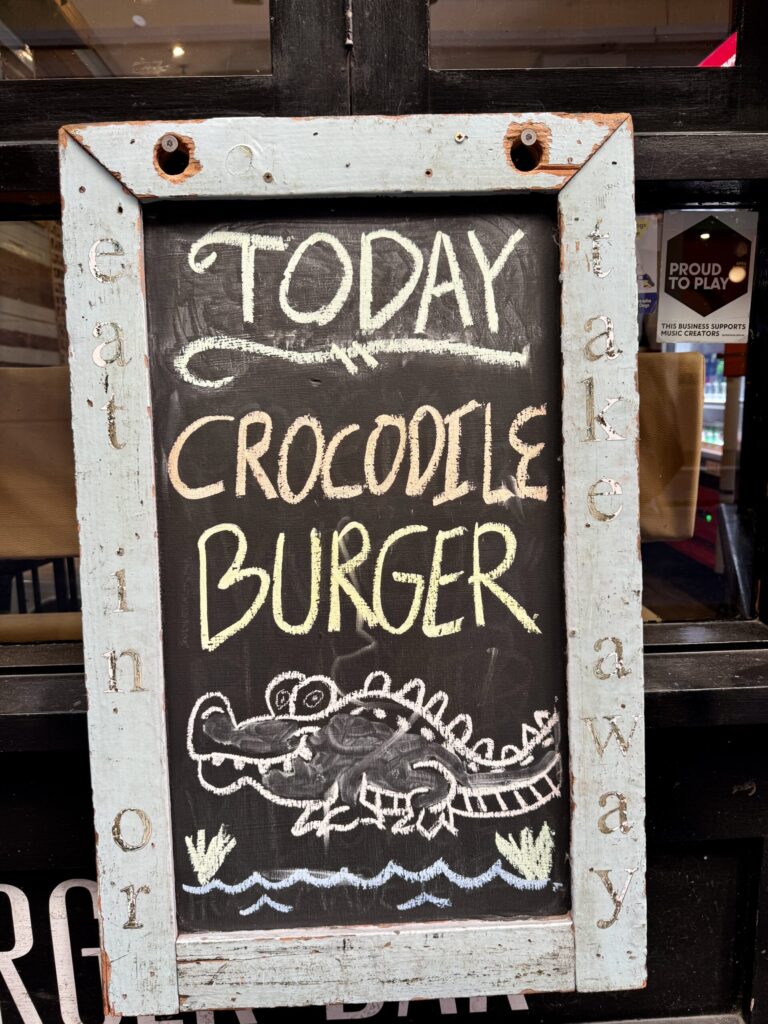 TODAY
CROCODILE
BURGER
eat in or
take away
PROUD
TO PLAY
THIS BUSINESS SUPPORTS
MUSIC CREATORS
BAR